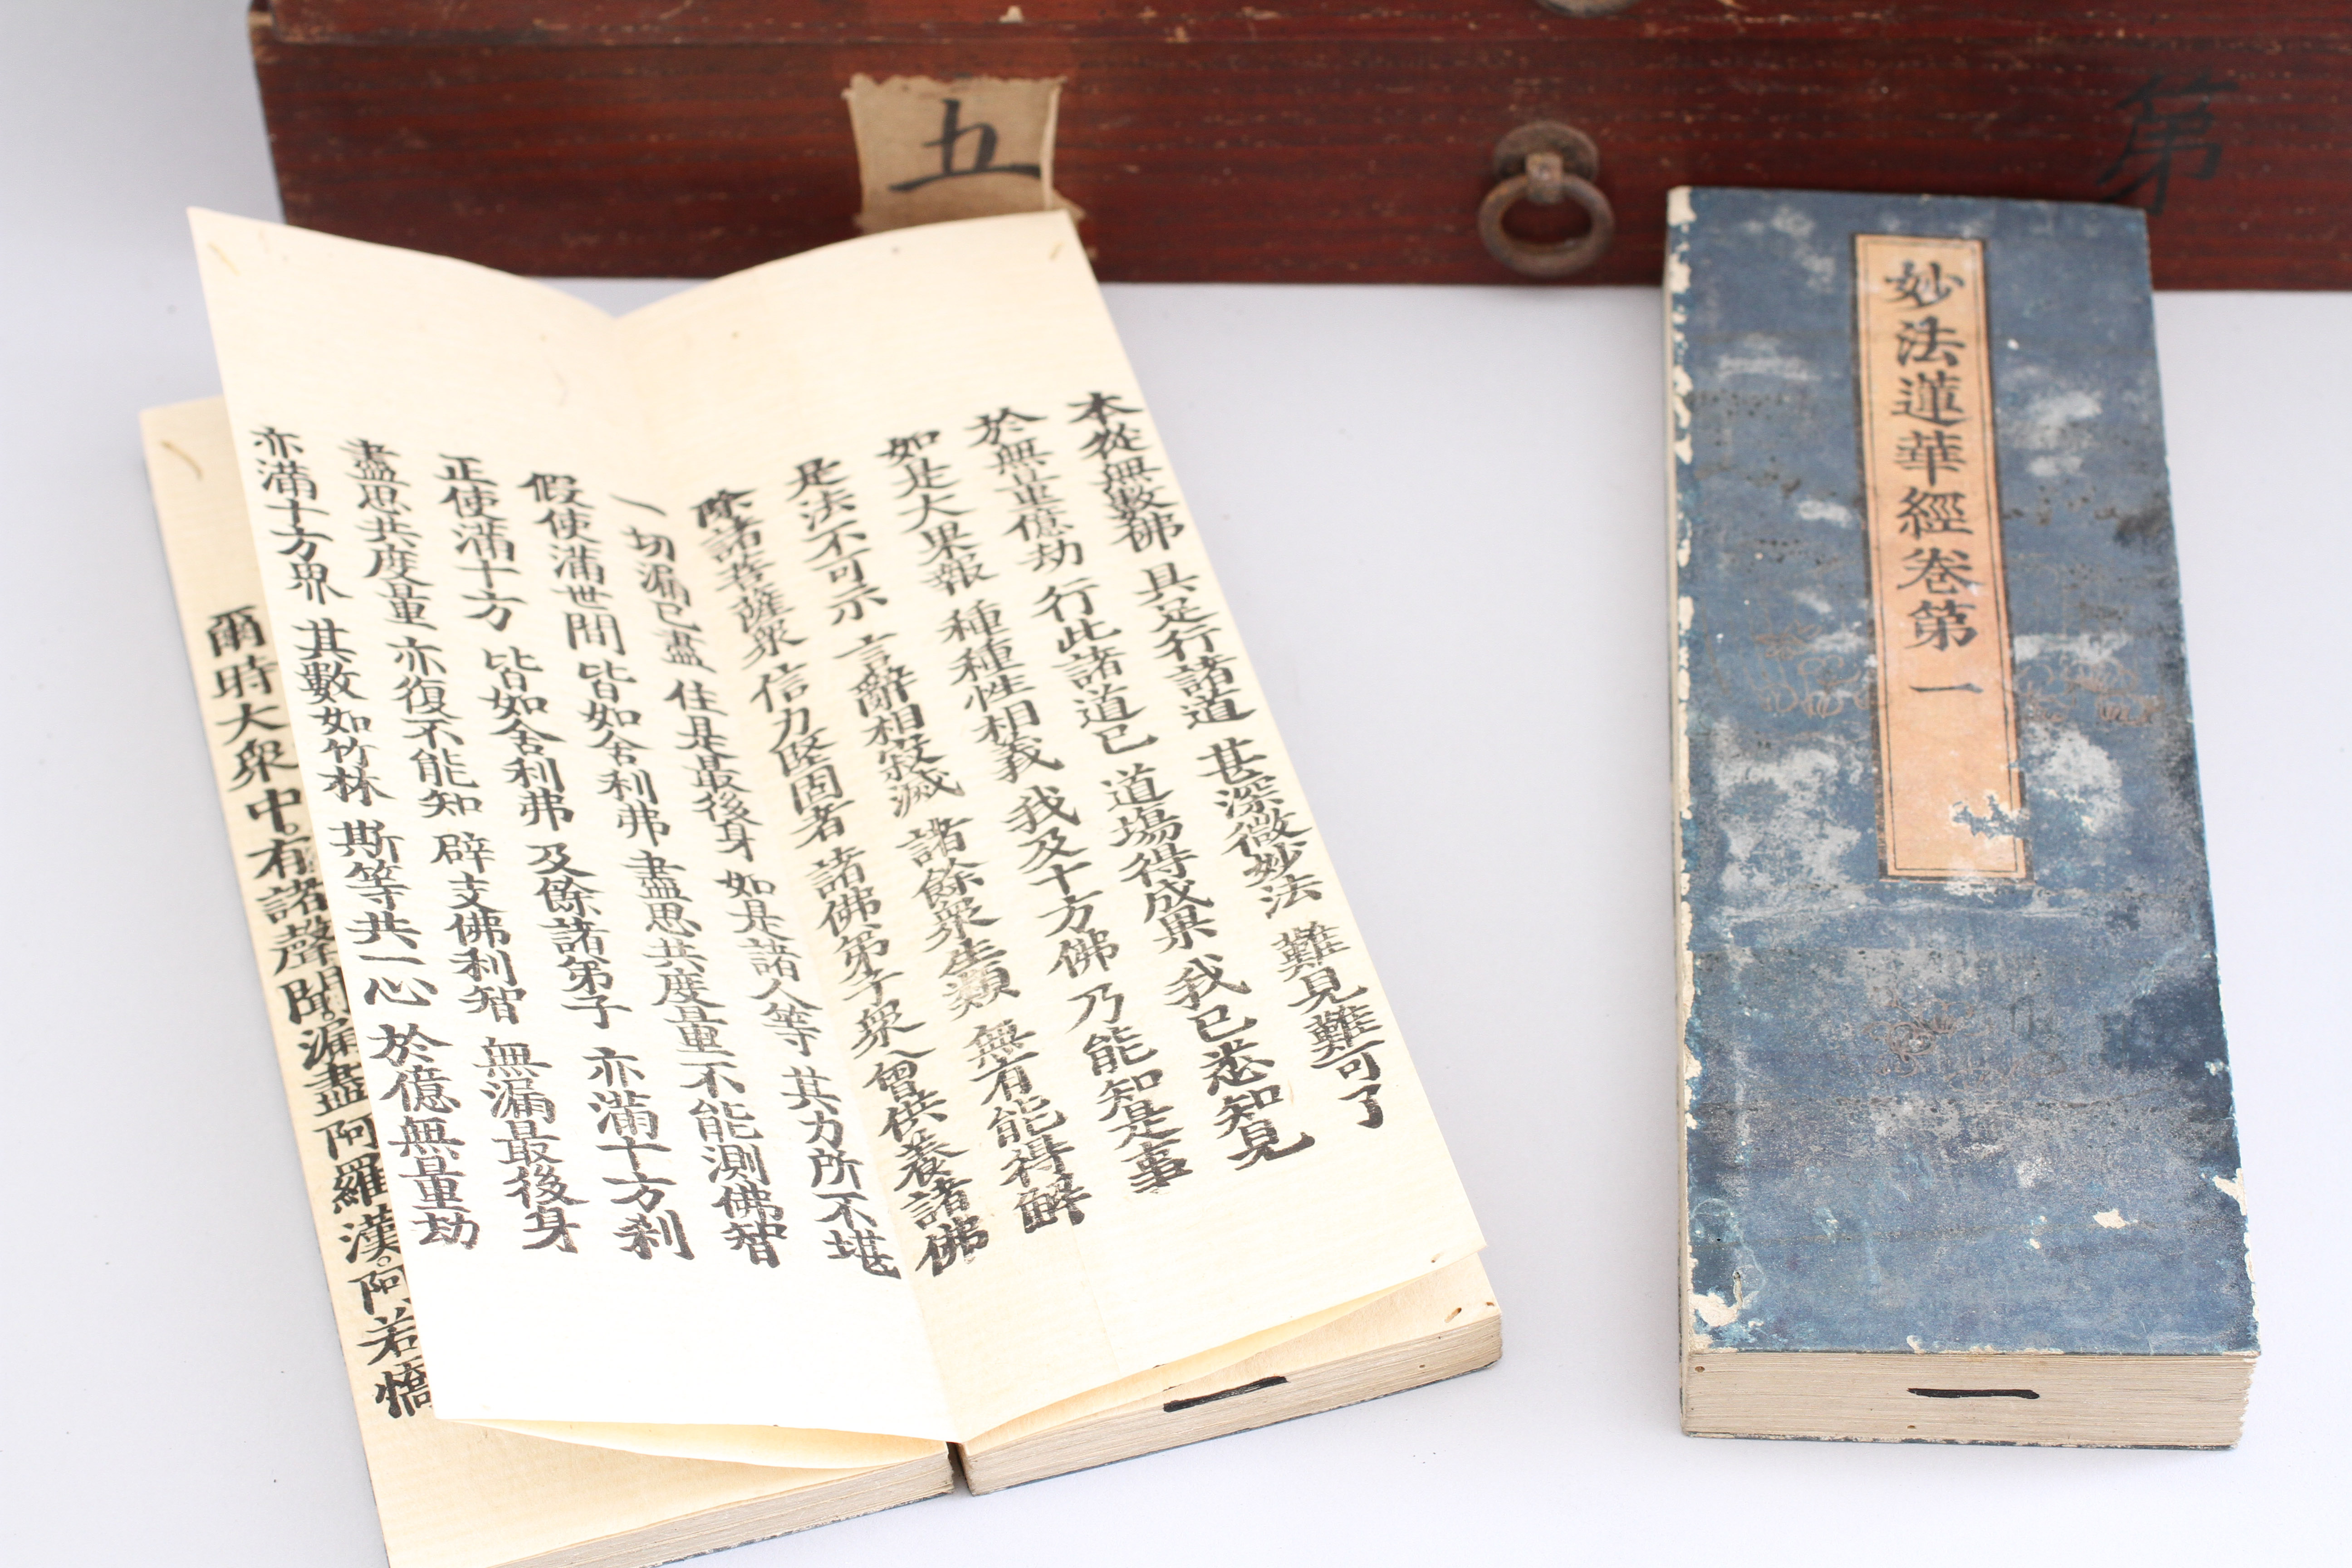 五
第
妙法蓮華經卷第一
一
本從無數佛 具足行諸道 甚深微妙法 難見難可了
於無量億劫 行此諸道已 道場得成果 我已悉知見
如是大果報 種種性相義 我及十方佛 乃能知是事
是法不可示 言辭相寂滅 諸餘衆生類 無有能得解
除諸菩薩衆 信力堅固者 諸佛弟子衆 曾供養諸佛
一切漏已盡 住是最後身 如是諸人等 其力所不堪
假使滿世間 皆如舍利弗 盡思共度量 不能測佛智
正使滿十方 皆如舍利弗 及餘諸弟子 亦滿十方刹
盡思共度量 亦復不能知 辟支佛利智 無漏最後身
亦滿十方界 其數如竹林 斯等共一心 於億無量劫
爾時大衆中。有諸聲聞。漏盡阿羅漢。阿若憍
一